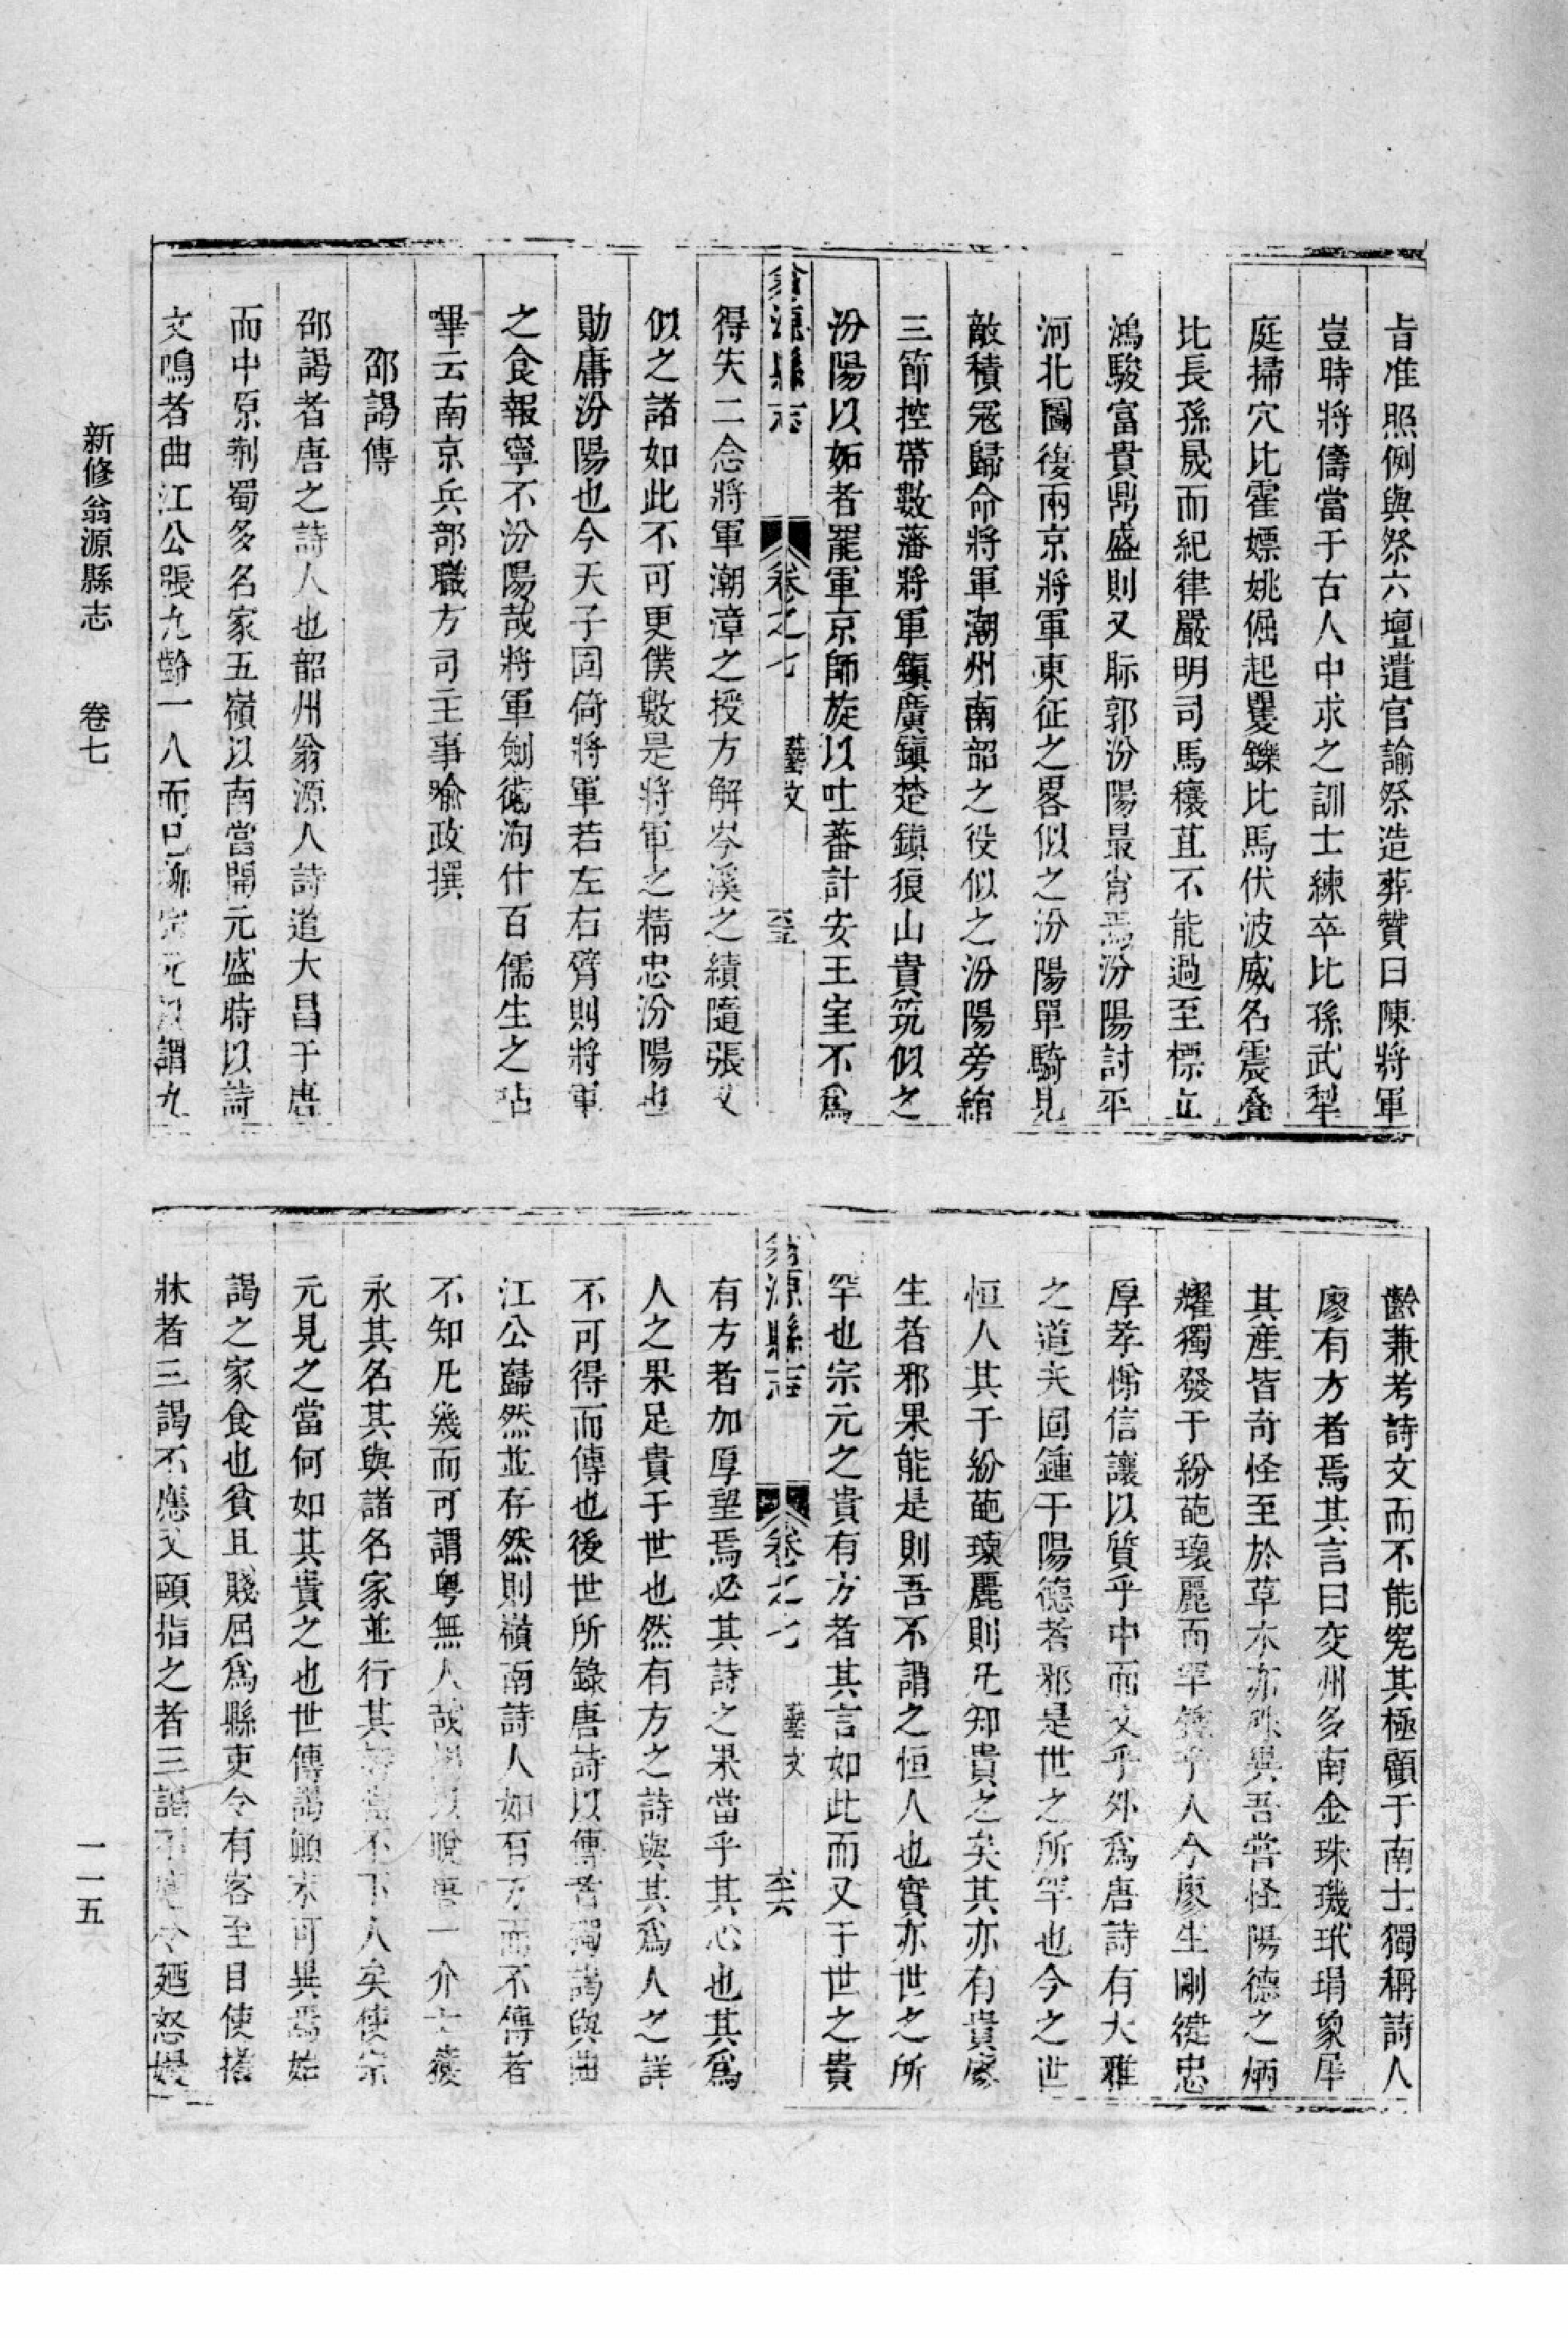 旨准照例與祭六壇遣官諭祭造葬贊曰陳將軍
豈時將儔當于古人中求之訓士練卒比孫武犁
庭掃穴比霍嫖姚倔起矍鑠比馬伏波威名震叠
比長孫晟而紀律嚴明司馬穰苴不能過至標立
鴻駿富貴鼎盛則又眎郭汾陽最肖焉汾陽討平
河北圖復兩京將軍東征之畧似之汾陽單騎見
敵積冦歸命將軍潮州南韶之役似之汾陽旁綰
三節控帶數藩將軍鎮廣鎮楚鎮狼山貴筑似之
汾陽以妬者罷軍京師旋以吐蕃計安王室不爲
翁源縣志 卷之七 藝文
得失二念將軍潮漳之授方解岑溪之績隨張又
似之諸如此不可更僕數是將軍之精忠汾陽也
勛庸汾陽也今天子固倚將軍若左右臂則將軍
之食報寧不汾陽哉將軍劍術洵什百儒生之呫
畢云南京兵部職方司主事喻政撰
邵謁傳
邵謁者唐之詩人也韶州翁源人詩道大昌于唐
而中原荆蜀多名家五嶺以南當開元盛時以詩
文鳴者曲江公張九齡一人而已柳宗元謂九
齡兼考詩文而不能究其極顧于南士獨稱詩人
廖有方者焉其言曰交州多南金珠璣玳瑁象犀
其産皆奇怪至於草木亦殊異吾嘗怪陽德之炳
耀獨發于紛葩瓌麗而罕鍾乎人今廖生剛徤忠
厚孝悌信讓以質乎中而文乎外爲唐詩有大雅
之道夫固鍾于陽德者邪是世之所罕也今之世
恒人其于紛葩瓌麗則凡知貴之矣其亦有貴廖
生者邪果能是則吾不謂之恒人也實亦世之所
罕也宗元之貴有方者其言如此而又于世之貴
翁源縣志 卷之七 藝文
有方者加厚望焉必其詩之果當乎其心也其爲
人之果足貴于世也然有方之詩與其爲人之詳
不可得而傳也後世所錄唐詩以傳者獨謁與曲
江公巋然並存然則嶺南詩人如有方而不傳者
不知凡幾而可謂粤無人哉謁以晚唐一介士獲
永其名其與諸名家並行其不下人矣使宗
元見之當何如其貴之也世傳謁顛末可異焉始
謁之家食也貧且賤屈爲縣吏令有客至目使搘
牀者三謁不應又頤指之者三謁不令廼怒嫚
新修翁源縣志 卷七
一一五